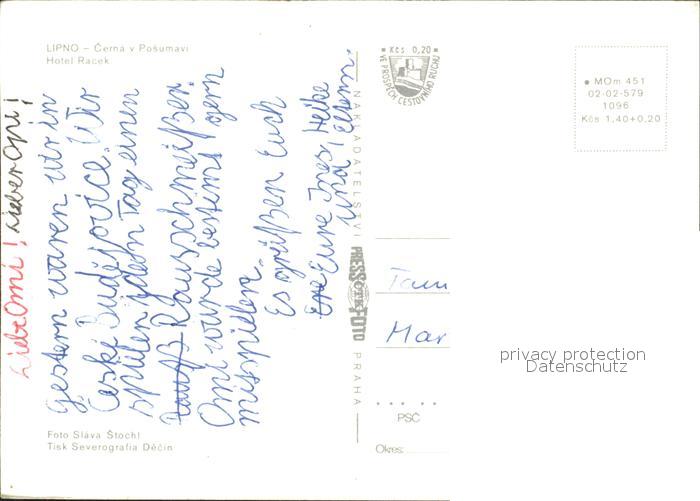 LIPNO – Černá v Pošumaví
Hotel Racek
Liebe Omi! Lieber Opi!
Gestern waren wir in
České Budějovice. Wir
spielen jedem Tag einen
Rausschmeißer.
Omi wurde bestimt gern
mispielen.
Es grüßen Euch
Eure Ines, Heike
und Eltern.
Foto Sláva Štochl
Tisk Severografia Děčín
NAKLADATELSTVÍ
PRESSFOTO
PRAHA
Kčs 0,20
VE PROSPĚCH CESTOVNÍHO RUCHU
MOm 451
02-02-579
1096
Kčs 1,40+0,20
Mar
privacy protection
Datenschutz
PSČ
Okres: